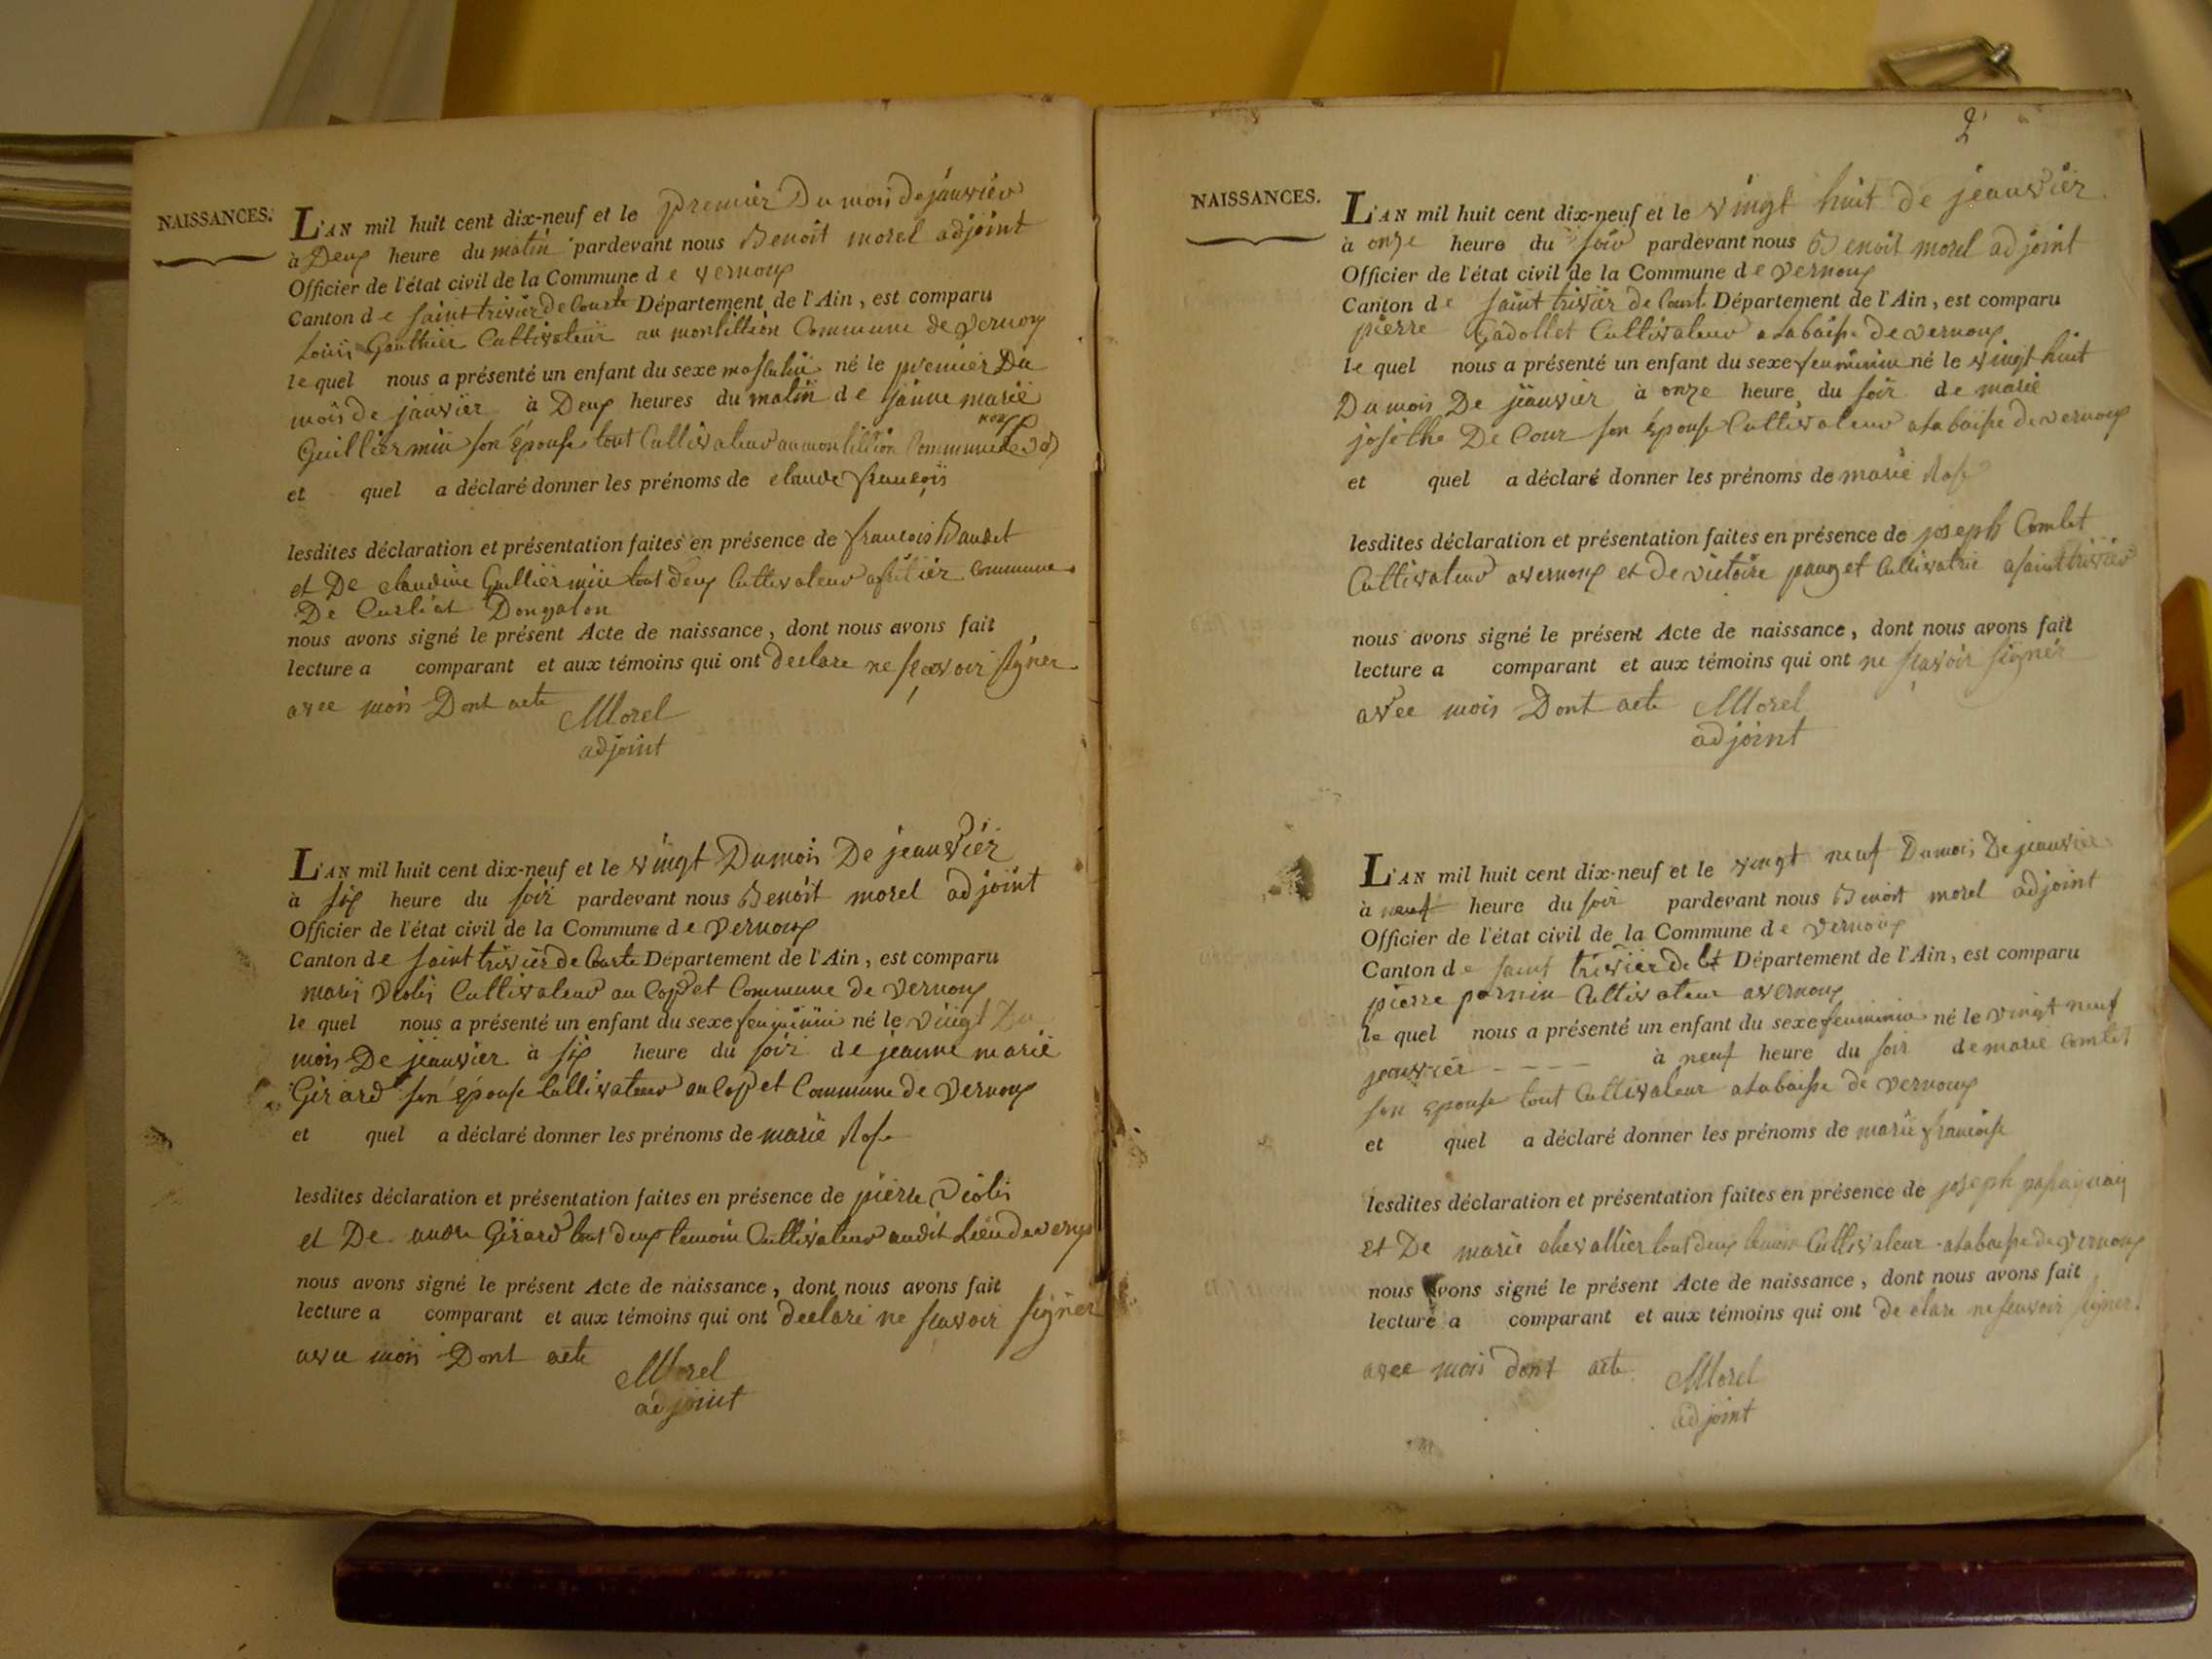 NAISSANCES.
L'AN mil huit cent dix-neuf et le premier Du mois de janvier
à Deux heure du matin pardevant nous Benoit morel adjoint
Officier de l'état civil de la Commune de vernoux
Canton de saint trivier de Courte Département de l'Ain, est comparu
Louis Gauthier Cultivateur au montillion Commune de vernoux
lequel nous a présenté un enfant du sexe masculin né le premier Du
mois de janvier à Deux heures du matin de janne marie
noux
Guilliermin son épouse tout Cultivateur au montillion Commune de ver
et quel a déclaré donner les prénoms de claude françois
lesdites déclaration et présentation faites en présence de francois Baudet
et De claudine Guilliermin tout deux Cultivateur Commune
De Curliat Dongalon
nous avons signé le présent Acte de naissance, dont nous avons fait
lecture a comparant et aux témoins qui ont declare ne scavoir signer
avec mois Dont acte Morel
adjoint
L'AN mil huit cent dix-neuf et le vingt Du mois De jeanvier
à six heure du soir pardevant nous Benoit morel adjoint
Officier de l'état civil de la Commune de vernoux
Canton de saint trivier de Courte Département de l'Ain, est comparu
maris violis Cultivateur au Commune de vernoux
le quel nous a présenté un enfant du sexe feminin né le vingt Du
mois De jeanvier à six heure du soir de jeanne marie
Girard son épouse Cultivateur au Commune de vernoux
et quel a déclaré donner les prénoms de marie Rose
lesdites déclaration et présentation faites en présence de pierre violis
et De andre Girard tout deux temoin Cultivateur audit Lieu de vernoux
nous avons signé le présent Acte de naissance, dont nous avons fait
lecture a comparant et aux témoins qui ont declare ne scavoir signer
avec mois Dont acte Morel
adjoint
2
NAISSANCES.
L'AN mil huit cent dix-neuf et le vingt huit de jeanvier
à onze heure du soir pardevant nous Benoit morel adjoint
Officier de l'état civil de la Commune de vernoux
Canton de saint trivier de Court Département de l'Ain, est comparu
pierre Gadollet Cultivateur a La baisse de vernoux
le quel nous a présenté un enfant du sexe feminin né le vingt huit
Du mois De jeanvier à onze heure du soir de marie
josethe De Cour son épouse Cultivateur a La baisse de vernoux
et quel a déclaré donner les prénoms de marie Rose
lesdites déclaration et présentation faites en présence de joseph Comlet
Cultivateur a vernoux et de victoire pauget Cultivatrie a saint trivier
nous avons signé le présent Acte de naissance, dont nous avons fait
lecture a comparant et aux témoins qui ont ne scavoir signer
avec mois Dont acte Morel
adjoint
L'AN mil huit cent dix-neuf et le vingt neuf Du mois De jeanvier
à neuf heure du soir pardevant nous Benoit morel adjoint
Officier de l'état civil de la Commune de vernoux
Canton de saint trivier de Ct Département de l'Ain, est comparu
pierre pernin Cultivateur a vernoux
le quel nous a présenté un enfant du sexe feminin né le vingt neuf
jeanvier ---- à neuf heure du soir de marie Comlet
son epouse tout Cultivateur a La baisse de vernoux
et quel a déclaré donner les prénoms de marie francoise
lesdites déclaration et présentation faites en présence de joseph
et De marie chevallier tout deux temoin Cultivateur a La baisse de vernoux
nous avons signé le présent Acte de naissance, dont nous avons fait
lecture a comparant et aux témoins qui ont de clare ne scavoir signer.
avec mois dont acte Morel
adjoint